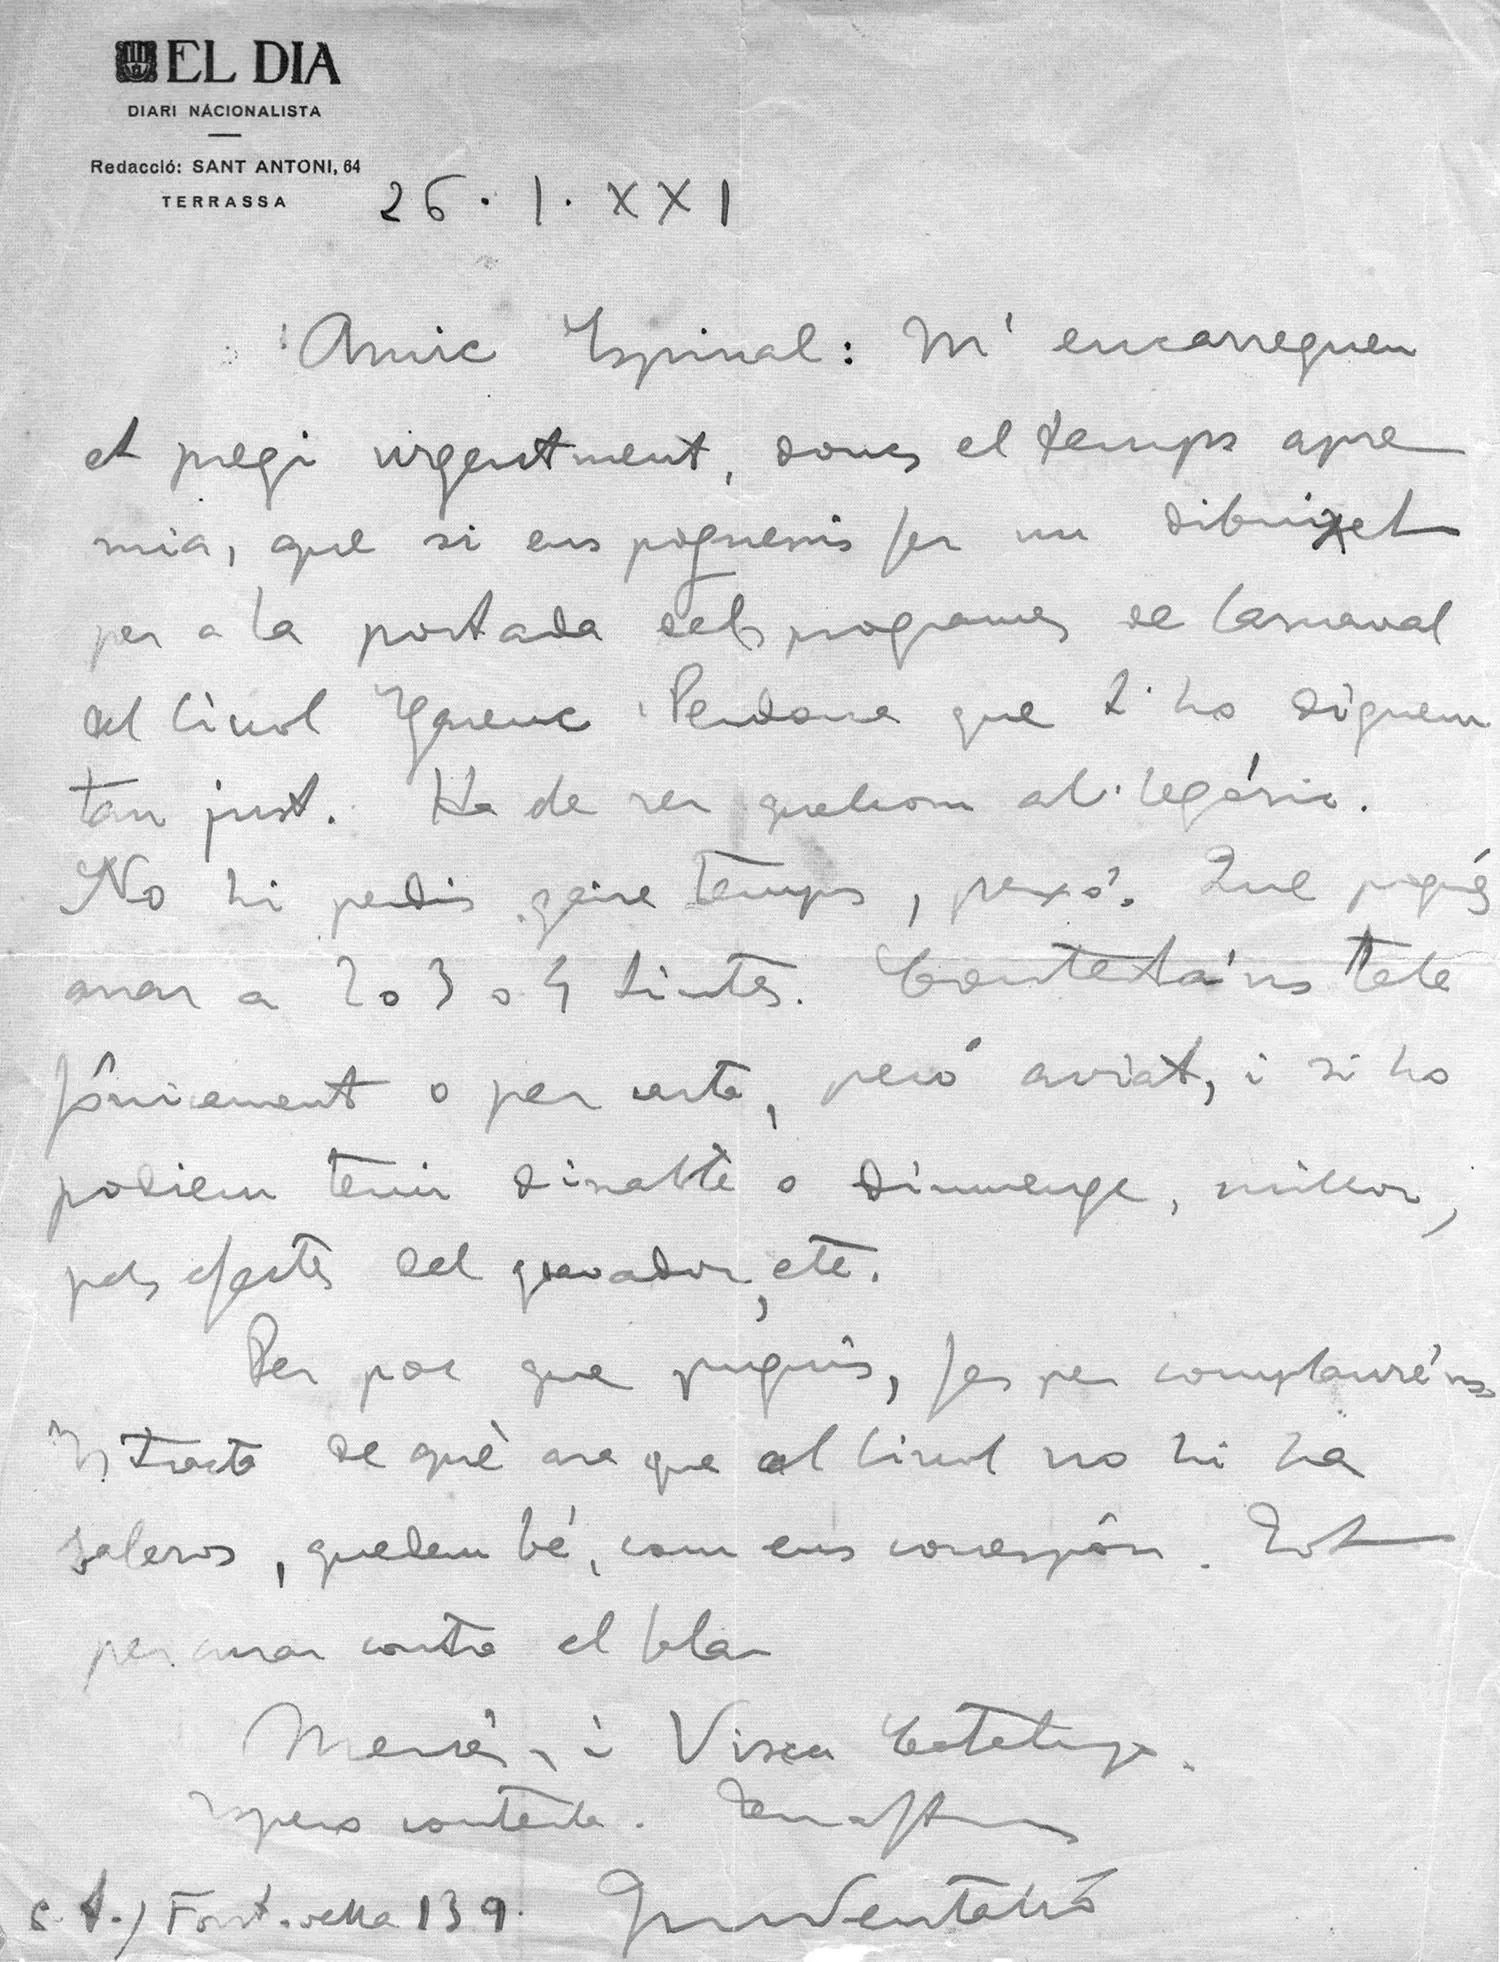 EL DIA
DIARI NACIONALISTA
Redacció: SANT ANTONI, 64
TERRASSA
26 . I . XXI
Amic Espinal: M'encarreguen
et pregi urgentment, doncs el temps apre
mia, que si ens poguessis fer un dibuixet
per a la portada dels programes de Carnaval
del Círcol Egarenc. Perdona que t'ho diguem
tan just. Ha de ser quelcom al·legóric.
No hi perdis gaire temps, perxó. Que pugués
anar a 2 o 3 o 4 tintes. Contestá'ns tele
fónicament o per carta, peró aviat, i si ho
podiem tenir disabte o diumenge, millor,
pels efectes del gravador, etc.
Per poc que puguis, fes per complaure'ns
Es tracta de què ara que al Círcol no hi ha
saleros, quedem bé, com ens correspón. Tot
per anar contra el
Mercés, i Visca Catalunya.
Espero contesta. Ton afm
c. t./ Font-vella 139.